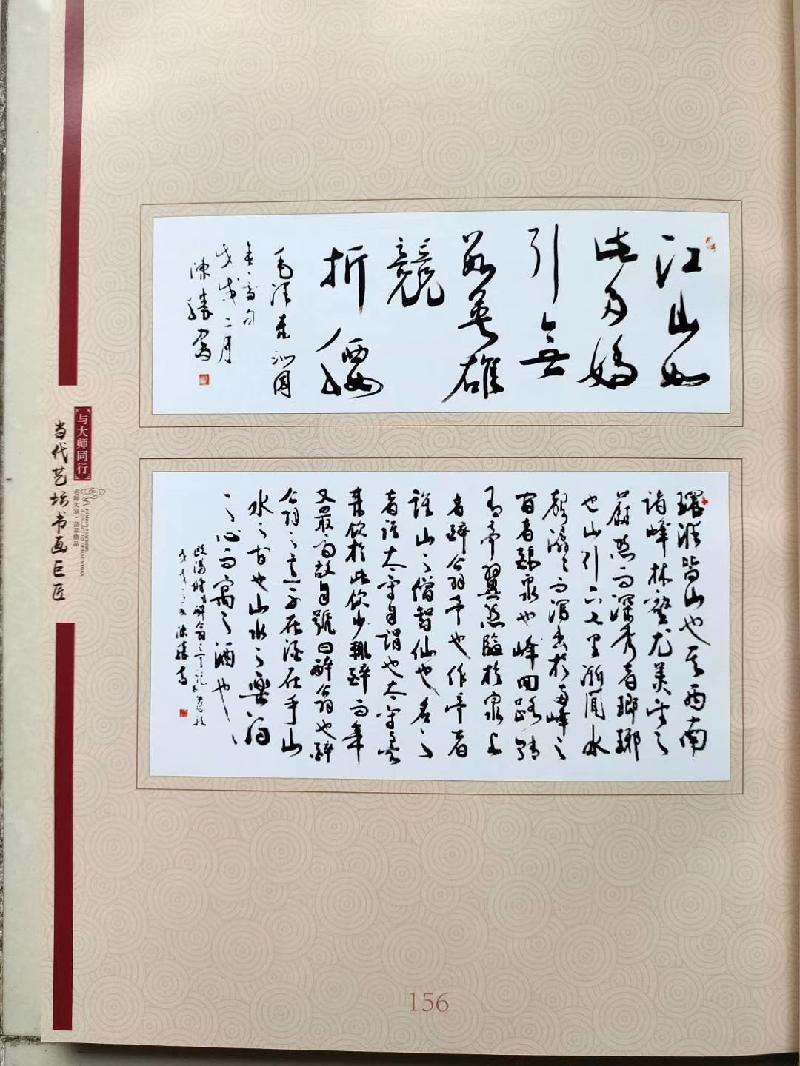 江山如
此多娇
引无
数英雄
競
折腰
毛泽东沁园
春雪句
戊戌二月
陈胜写
环滁皆山也其西南
诸峰林壑尤美望之
蔚然而深秀者瑯琊
也山行六七里渐闻水
声潺潺而泻出于两峰之
间者酿泉也峰回路转
有亭翼然临於泉上
者醉翁亭也作亭者
谁山之僧智仙也名之
者谁太守自谓也太守与客
来饮於此饮少辄醉而年
又最高故自號曰醉翁也醉
翁之意不在酒在乎山
水之间也山水之樂得
之心而寓之酒也
与大师同行
当代艺坛书画巨匠
156